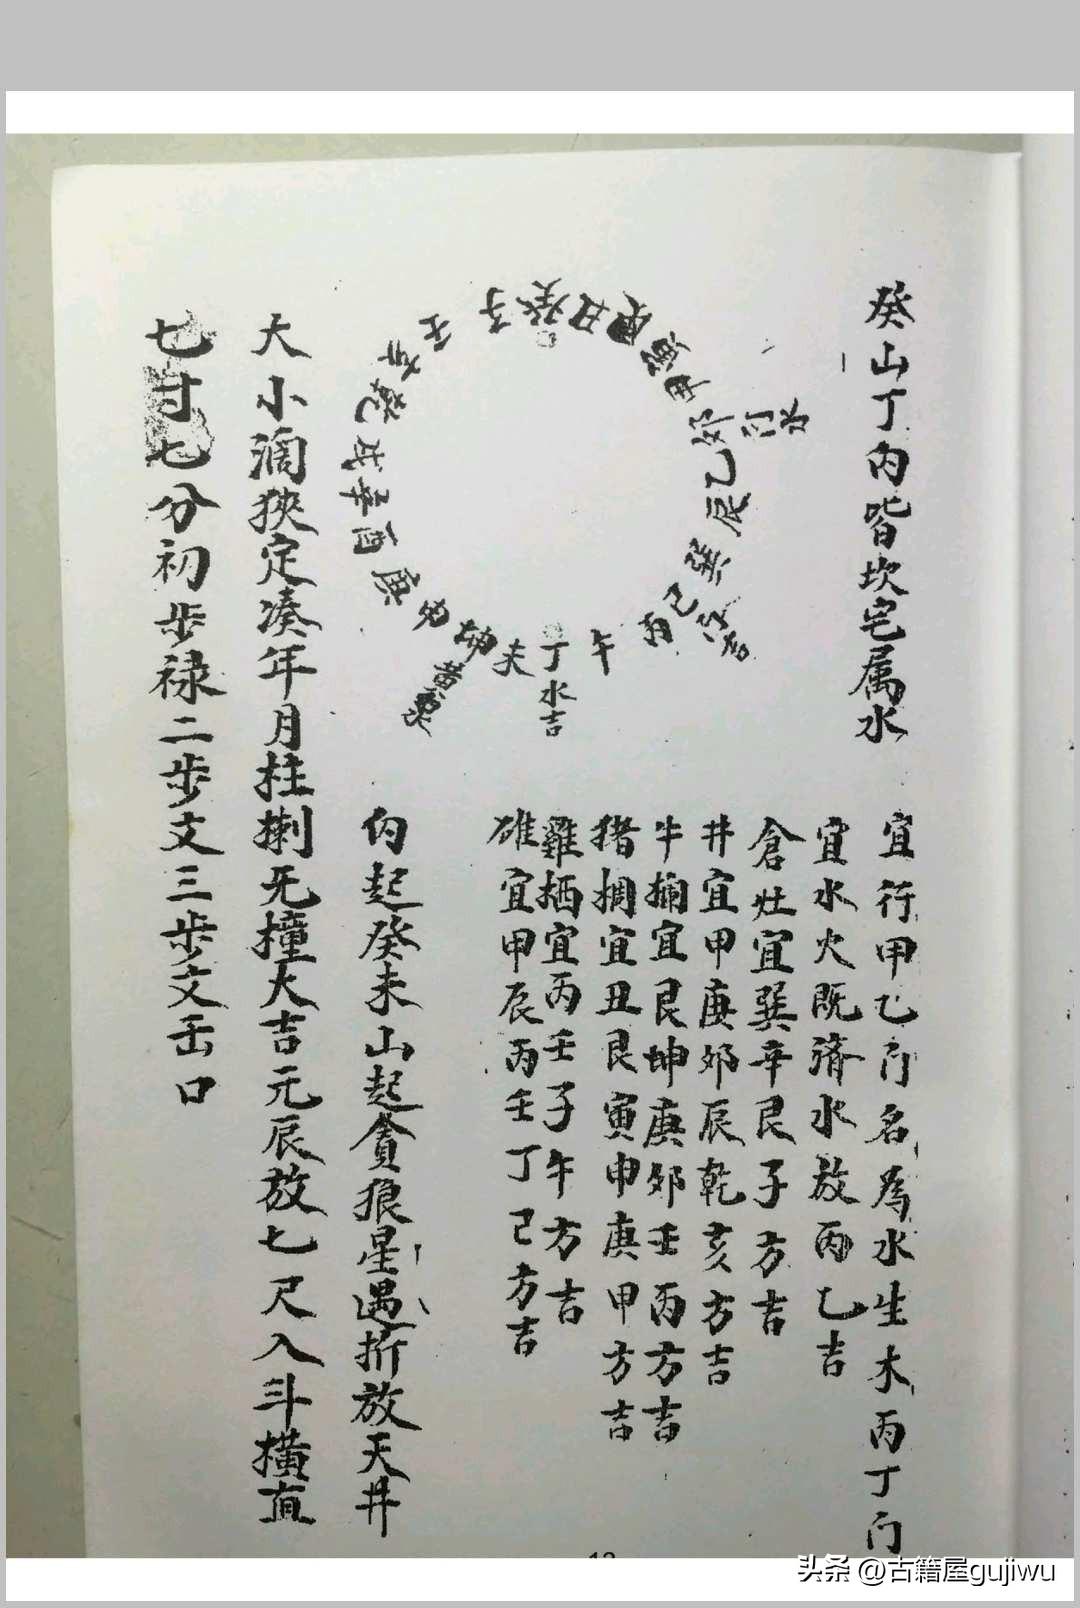 癸山丁内皆坎宅属水
宜行甲乙门名為水生木丙丁门
宜水火既济水放丙乙吉
倉灶宜巽辛艮子方吉
井宜甲庚卯辰乾亥方吉
牛捆宜艮坤庚卯壬丙方吉
猪椆宜丑艮寅申庚甲方吉
雞栖宜丙壬子午方吉
碓宜甲辰丙壬丁己方吉
子癸丑艮寅甲卯乙辰巽己丙午丁未坤
庚酉辛戌乾亥壬
门水
水吉
水吉
黄泉
内起癸未山起貪狼星遇折放天井
大小濶狹定凑年月柱捌无撞大吉元辰放七尺入斗横直
七寸七分初步禄二步文三步文 口
12
头条 @古籍屋gujiwu